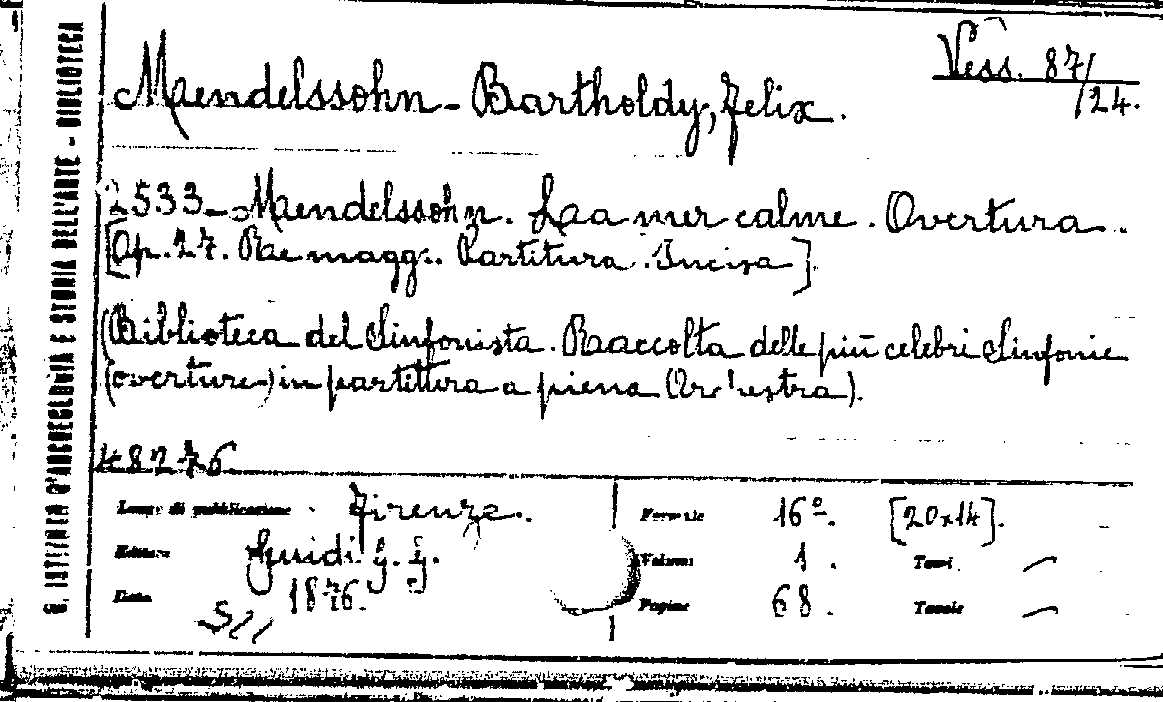 Maendelssohn - Bartholdy, Felix.
Vess. 87/24.
2533 - Maendelssohn. Laa mer calme. Overtura.
[Op. 27. Re magg. Partitura. Incisa].
(Biblioteca del Sinfonista. Raccolta delle più celebri Sinfonie
(overture) in partittura a piena Orchestra).
48276
Luogo di pubblicazione Firenze.
Editore Guidi G. G.
Data 1876.
Formato 16º. [20x14].
Volumi 1. Tomi —
Pagine 68. Tavole —
ISTITUTO D'ARCHEOLOGIA E STORIA DELL'ARTE - BIBLIOTECA